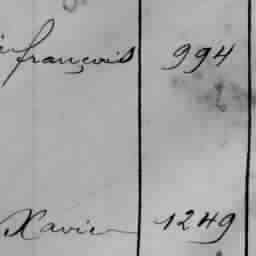 françois 994
Xavier 1249